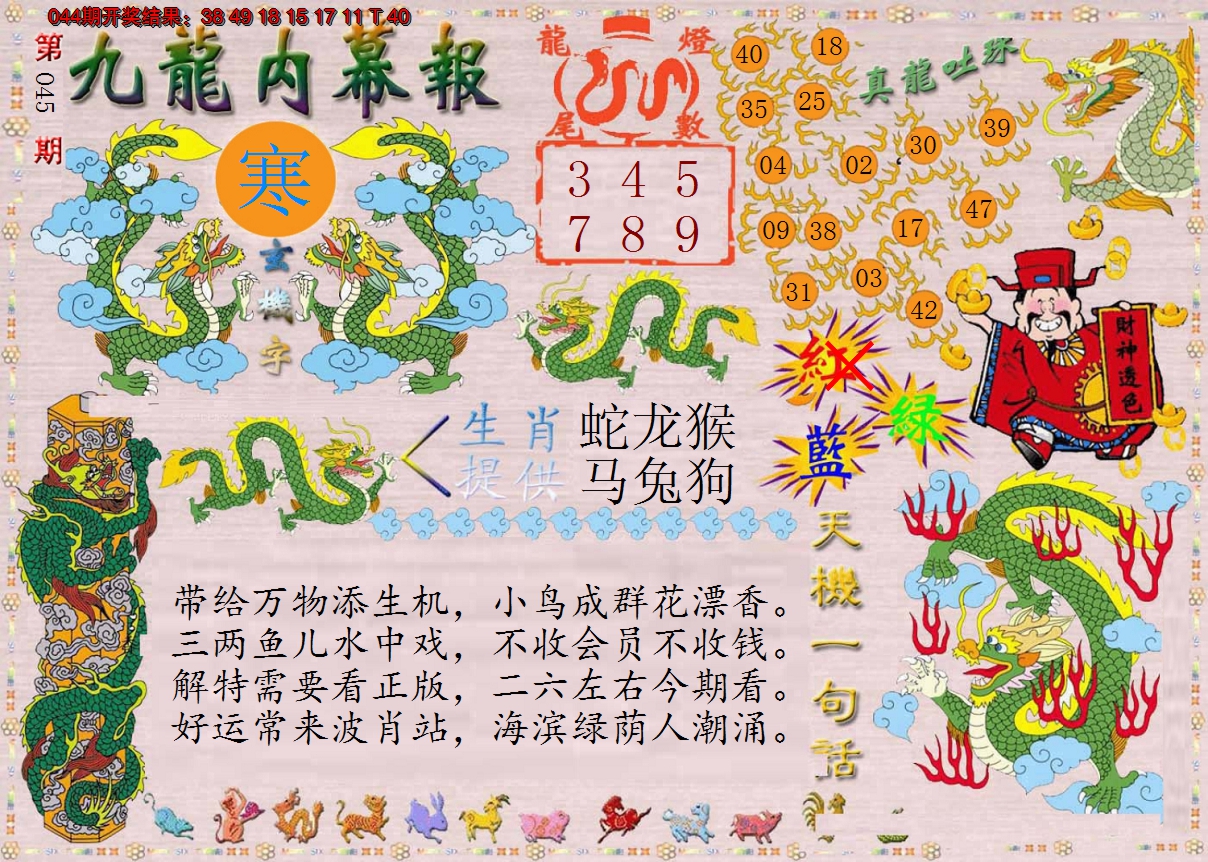 044期开奖结果：38 49 18 15 17 11 T 40
第045期
九龍内幕報
寒
玄機字
龍燈
尾數
3 4 5
7 8 9
真龍吐珠
40 18
35 25
30 39
04 02
09 38 17 47
31 03 42
財神透色
紅
绿
藍
生肖 蛇龙猴
提供 马兔狗
天機一句话
带给万物添生机，小鸟成群花漂香。
三两鱼儿水中戏，不收会员不收钱。
解特需要看正版，二六左右今期看。
好运常来波肖站，海滨绿荫人潮涌。